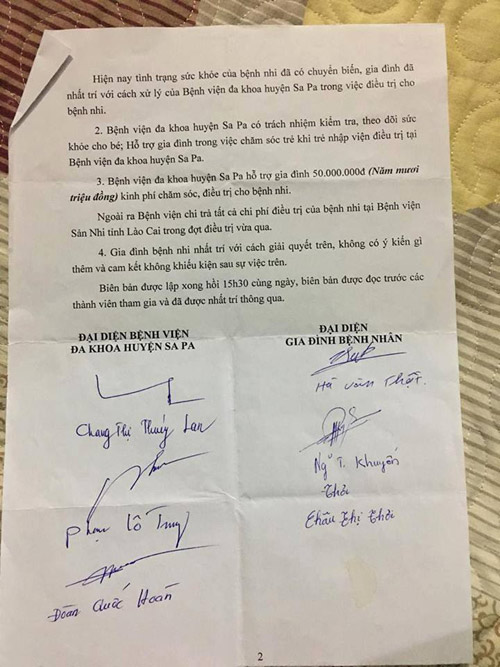 Hiện nay tình trạng sức khỏe của bệnh nhi đã có chuyển biến, gia đình đã
nhất trí với cách xử lý của Bệnh viện đa khoa huyện Sa Pa trong việc điều trị cho
bệnh nhi.
2. Bệnh viện đa khoa huyện Sa Pa có trách nhiệm kiểm tra, theo dõi sức
khỏe cho bé; Hỗ trợ gia đình trong việc chăm sóc trẻ khi trẻ nhập viện điều trị tại
Bệnh viện đa khoa huyện Sa Pa.
3. Bệnh viện đa khoa huyện Sa Pa hỗ trợ gia đình 50.000.000đ (Năm mươi
triệu đồng) kinh phí chăm sóc, điều trị cho bệnh nhi.
Ngoài ra Bệnh viện chi trả tất cả chi phí điều trị của bệnh nhi tại Bệnh viện
Sản Nhi tỉnh Lào Cai trong đợt điều trị vừa qua.
4. Gia đình bệnh nhi nhất trí với cách giải quyết trên, không có ý kiến gì
thêm và cam kết không khiếu kiện sau sự việc trên.
Biên bản được lập xong hồi 15h30 cùng ngày, biên bản được đọc trước các
thành viên tham gia và đã được nhất trí thông qua.
ĐẠI DIỆN BỆNH VIỆN
ĐA KHOA HUYỆN SA PA
Chang Thị Thuý Lan
Phạm Lô
Đoàn Quốc Hoàn
ĐẠI DIỆN
GIA ĐÌNH BỆNH NHÂN
Hà Văn Thật.
Ng T. Khuyến
Thôi
Châu Thị Thôi
2